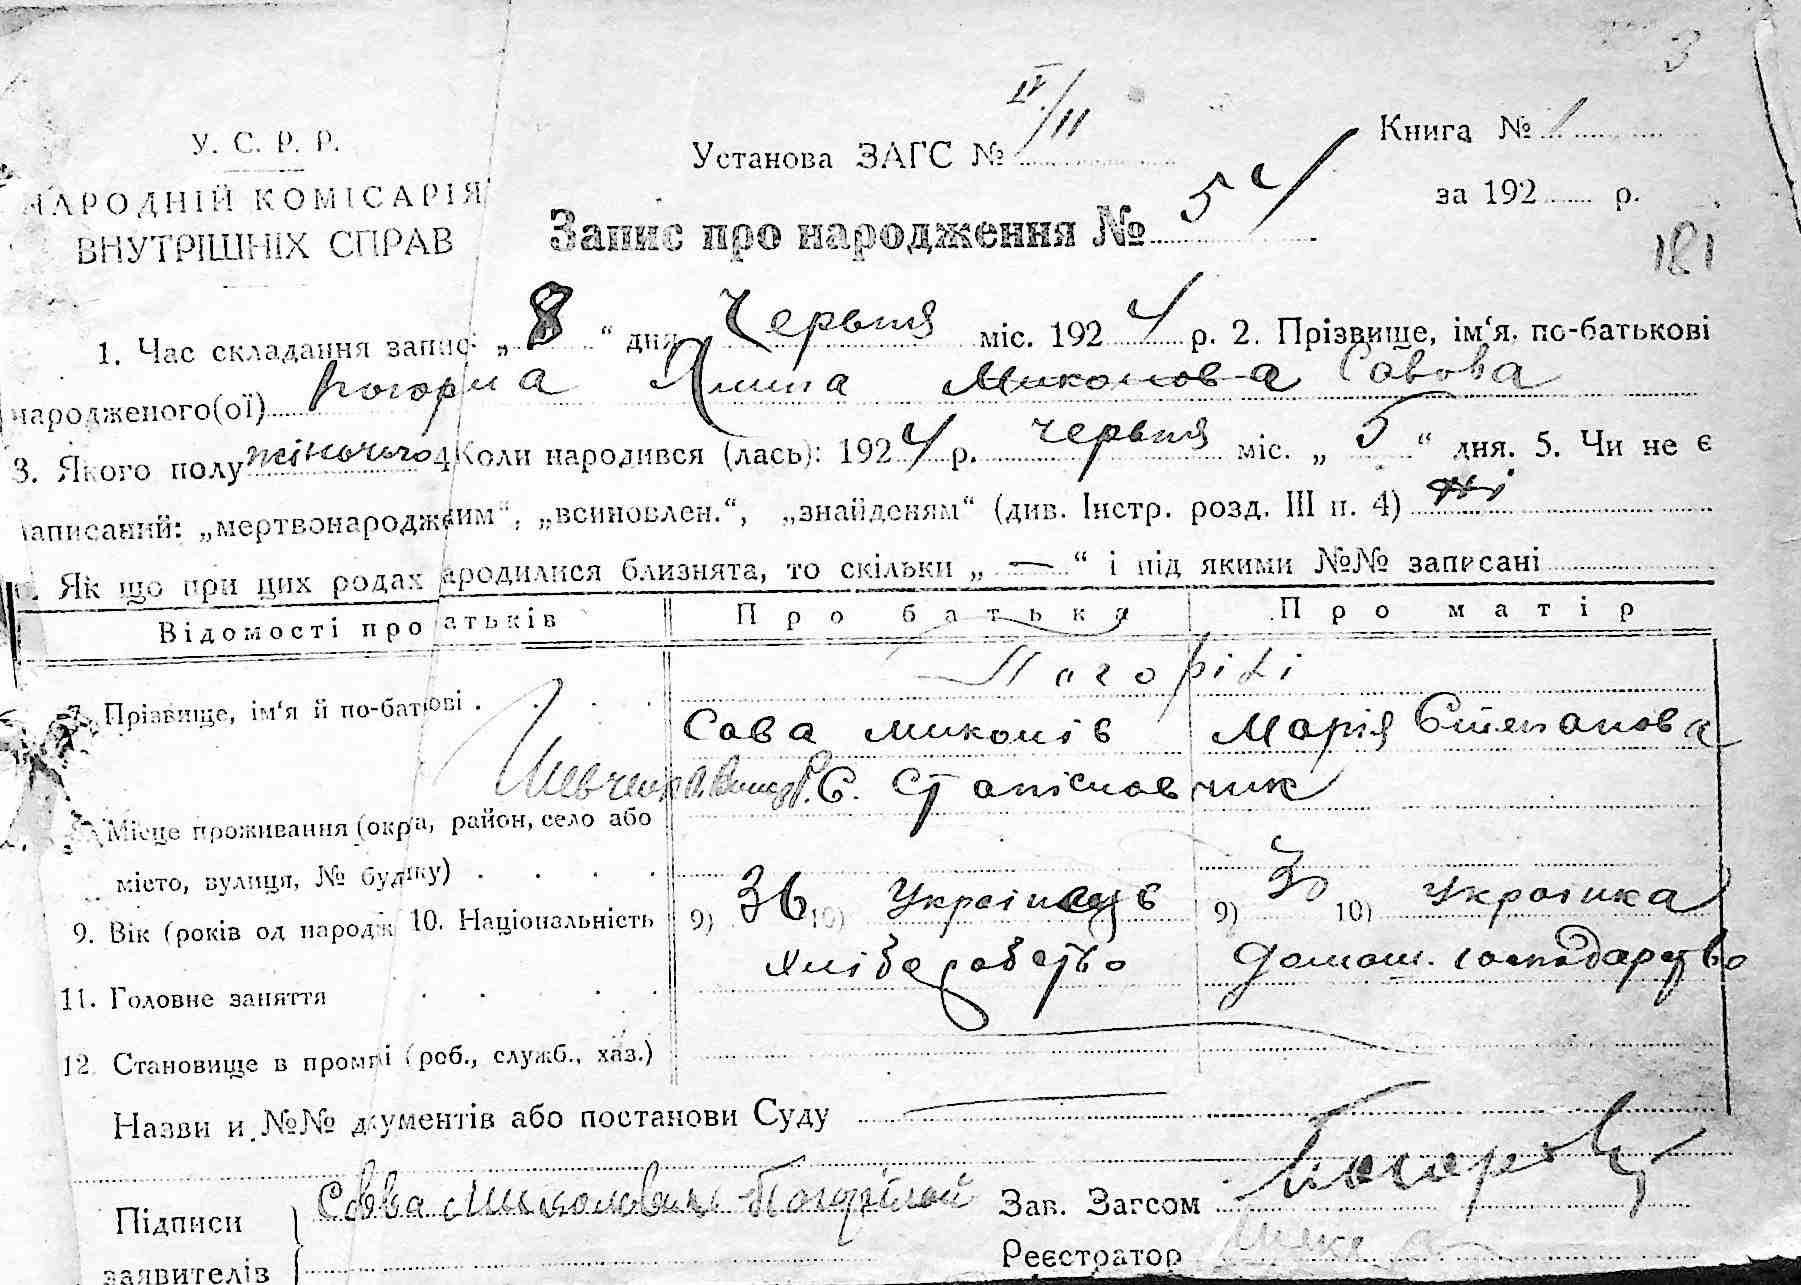 3
У. С. Р. Р.
НАРОДНІЙ КОМІСАРІЯ
ВНУТРІШНІХ СПРАВ
Установа ЗАГС № IV/11
Книга № 1
за 192 р.
Запис про народження № 54
181
1. Час складання запис „ 8 “ дня Червня міс. 1924 р. 2. Прізвище, ім‘я, по-батькові
народженого(ої) Погоріла Ялина Миколова Савова
3. Якого полу жіночого 4 Коли народився (лась): 1924 р. червня міс. „ 5 “ дня. 5. Чи не є
записаний: „мертвонароджеим“, „всиновлен.“, „знайденям“ (див. Інстр. розд. III п. 4) ні
Як що при цих родах ародилися близнята, то скільки „ — “ і під якими №№ записані
Відомості про атьків Про батька Про матір
Погорілі
7. Прізвище, ім‘я й по-батьові Сава Миколів Марія Степанова
С. Станіславчик
Місце проживання (окра, район, село або
місто, вулиця, № будику)
9. Вік (років од народж 10. Національність 9) 36 10) Українець 9) 30 10) Українка
11. Головне заняття хліборобство домаш. господарство
12. Становище в промиі (роб., служб., хаз.)
Назви и №№ дкументів або постанови Суду —
Підписи Сава Миколович Погорілой Зав. Загсом
заявителів Реєстратор